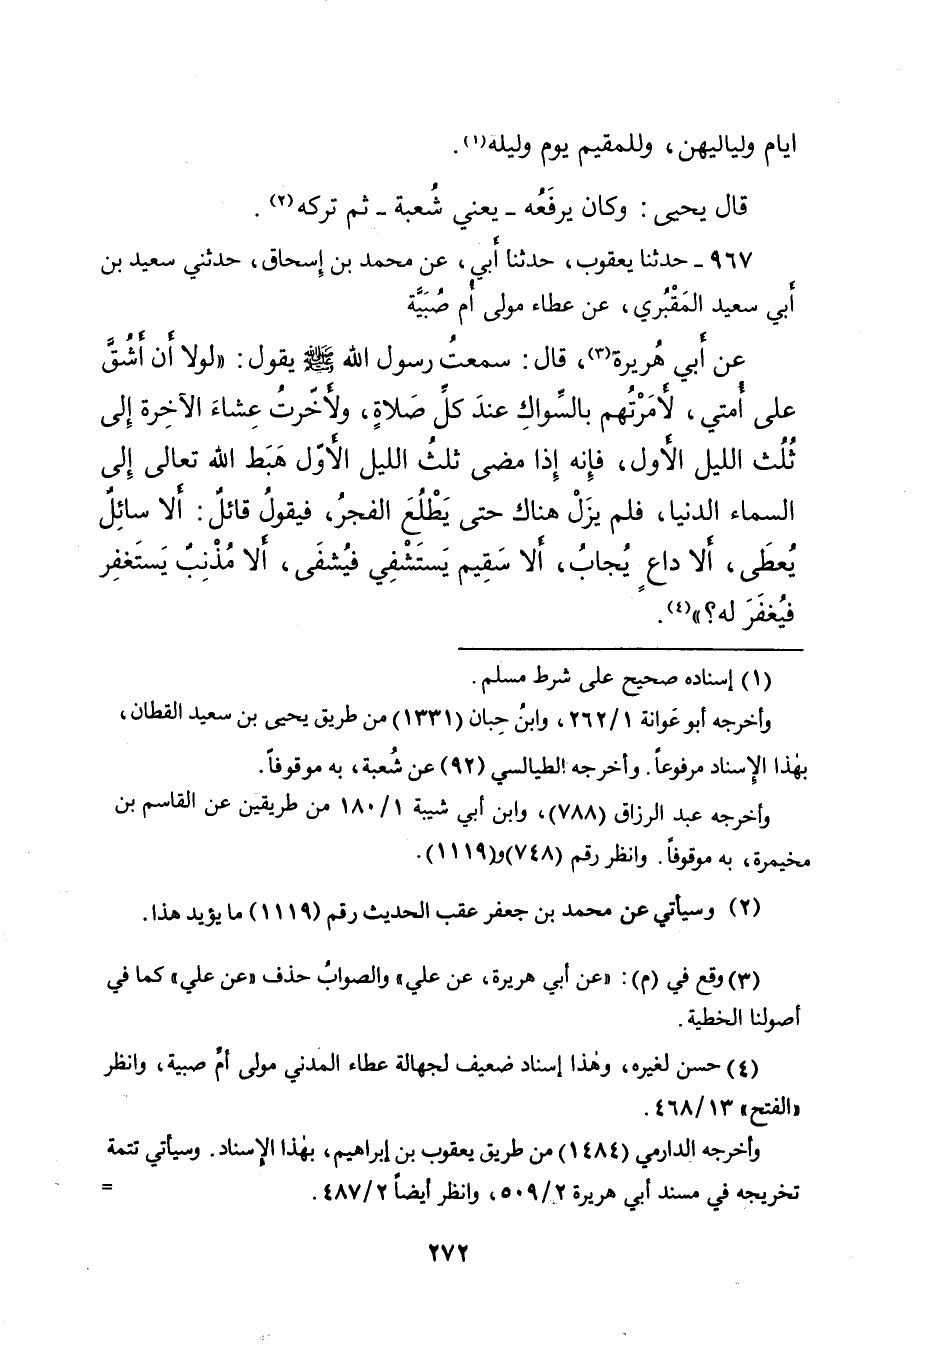 ايام ولياليهن، وللمقيم يوم وليله(١).
قال يحيى: وكان يرفَعُه ـ يعني شُعبة ـ ثم تركه(٢).
٩٦٧ ـ حدثنا يعقوب، حدثنا أَبي، عن محمد بن إسحاق، حدثني سعيد بن
أَبي سعيد المَقْبُري، عن عطاء مولى أُم صُبَيَّة
عن أَبي هُريرة(٣)، قال: سمعتُ رسول الله ﷺ يقول: «لولا أَن أَشُقَّ
على أُمتي، لأَمَرْتُهم بالسِّواكِ عندَ كلِّ صَلاةٍ، ولأَخّرتُ عِشاءَ الآخِرة إِلى
ثُلُث الليل الأَول، فإِنه إذا مضى ثلثُ الليل الأَوّل هَبَط الله تعالى إلى
السماء الدنيا، فلم يزَلْ هناك حتى يَطْلُعَ الفجرُ، فيقولُ قائلٌ: أَلا سائلٌ
يُعطَى، أَلا داعٍ يُجابُ، أَلا سَقِيم يَستَشْفِي فيُشفَى، أَلا مُذْنِبٌ يَستَغفِر
فيُغفَرَ له؟»(٤).
(١) إسناده صحيح على شرط مسلم.
وأخرجه أبو عَوانة ٢٦٢/١، وابنُ حِبان (١٣٣١) من طريق يحيى بن سعيد القطان،
بهٰذا الإِسناد مرفوعاً. وأخرجه الطيالسي (٩٢) عن شُعبة، به موقوفاً.
وأخرجه عبد الرزاق (٧٨٨)، وابن أبي شيبة ١٨٠/١ من طريقين عن القاسم بن
مخيمرة، به موقوفاً. وانظر رقم (٧٤٨)و(١١١٩).
(٢) وسيأتي عن محمد بن جعفر عقب الحديث رقم (١١١٩) ما يؤيد هذا.
(٣) وقع في (م): «عن أبي هريرة، عن علي» والصوابُ حذف «عن علي» كما في
أصولنا الخطية.
(٤) حسن لغيره، وهٰذا إسناد ضعيف لجهالة عطاء المدني مولى أمِّ صبية، وانظر
«الفتح» ٤٦٨/١٣.
وأخرجه الدارمي (١٤٨٤) من طريق يعقوب بن إبراهيم، بهٰذا الإِسناد. وسيأتي تتمة
تخريجه في مسند أبي هريرة ٥٠٩/٢، وانظر أيضاً ٤٨٧/٢. =
٢٧٢